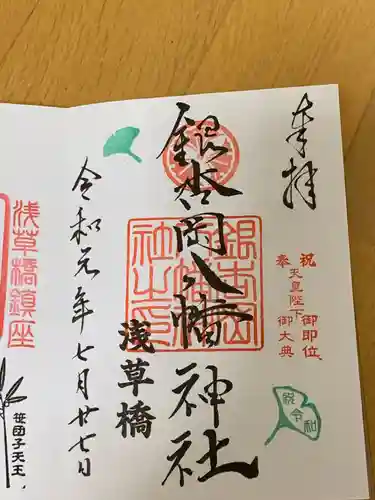 奉拝
祝 天皇陛下 御即位
奉 御大典
祝 令和
銀杏岡八幡神社
銀杏岡八幡神社之印
浅草橋
令和元年七月廿七日
浅草橋鎮座
笹団子天王